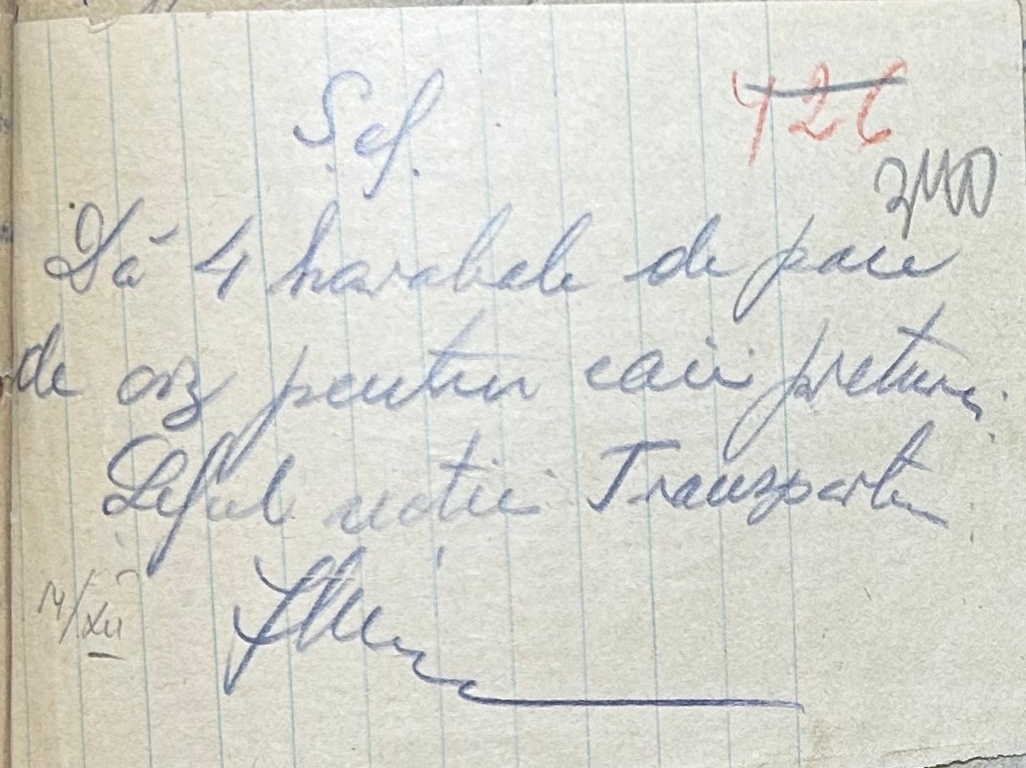 Șef.
426
240
Dă 4 harabale de paie
de orz pentru caii preturei.
Șeful secției Transportu
14/XII